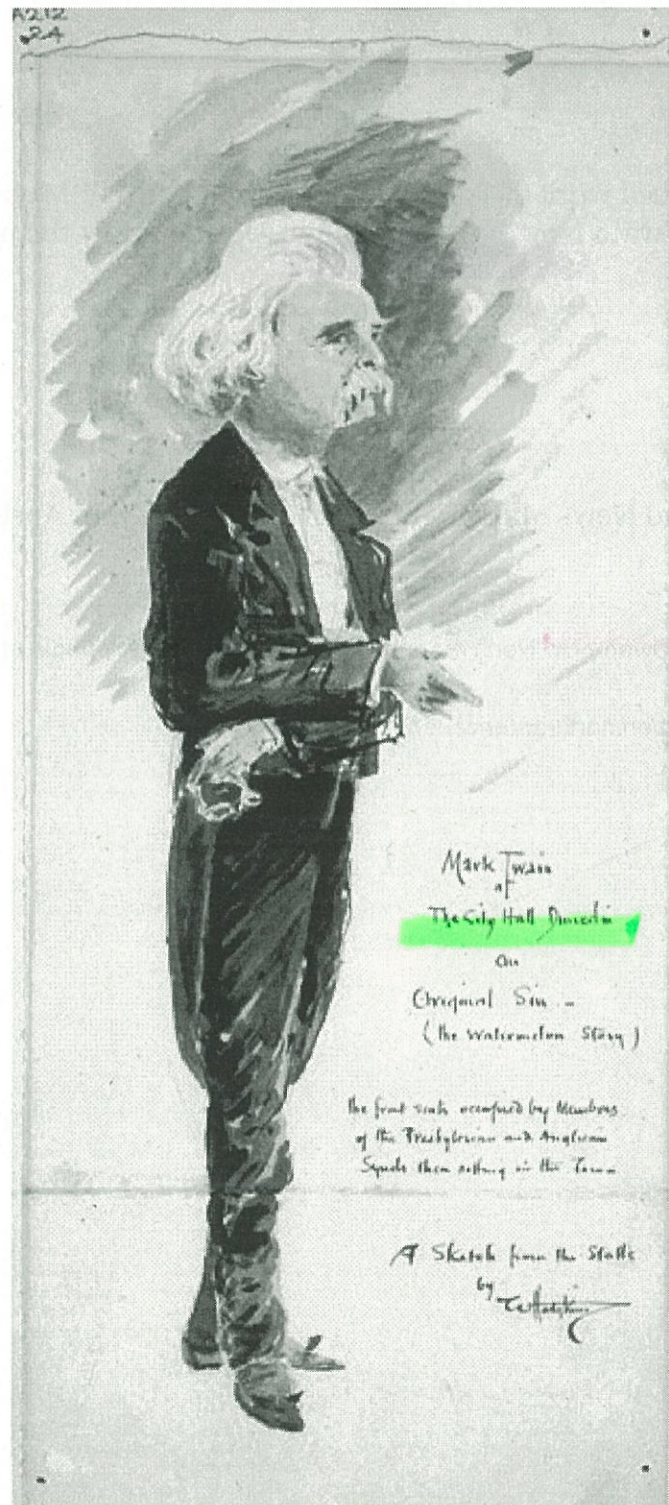 A212
24
Mark Twain
at
The City Hall Dunedin
on
Original Sin —
(the Watermelon Story)
the front seats occupied by Members
of the Presbyterian and Anglican
Synods then sitting in the Town —
A Sketch from the Stalls
by